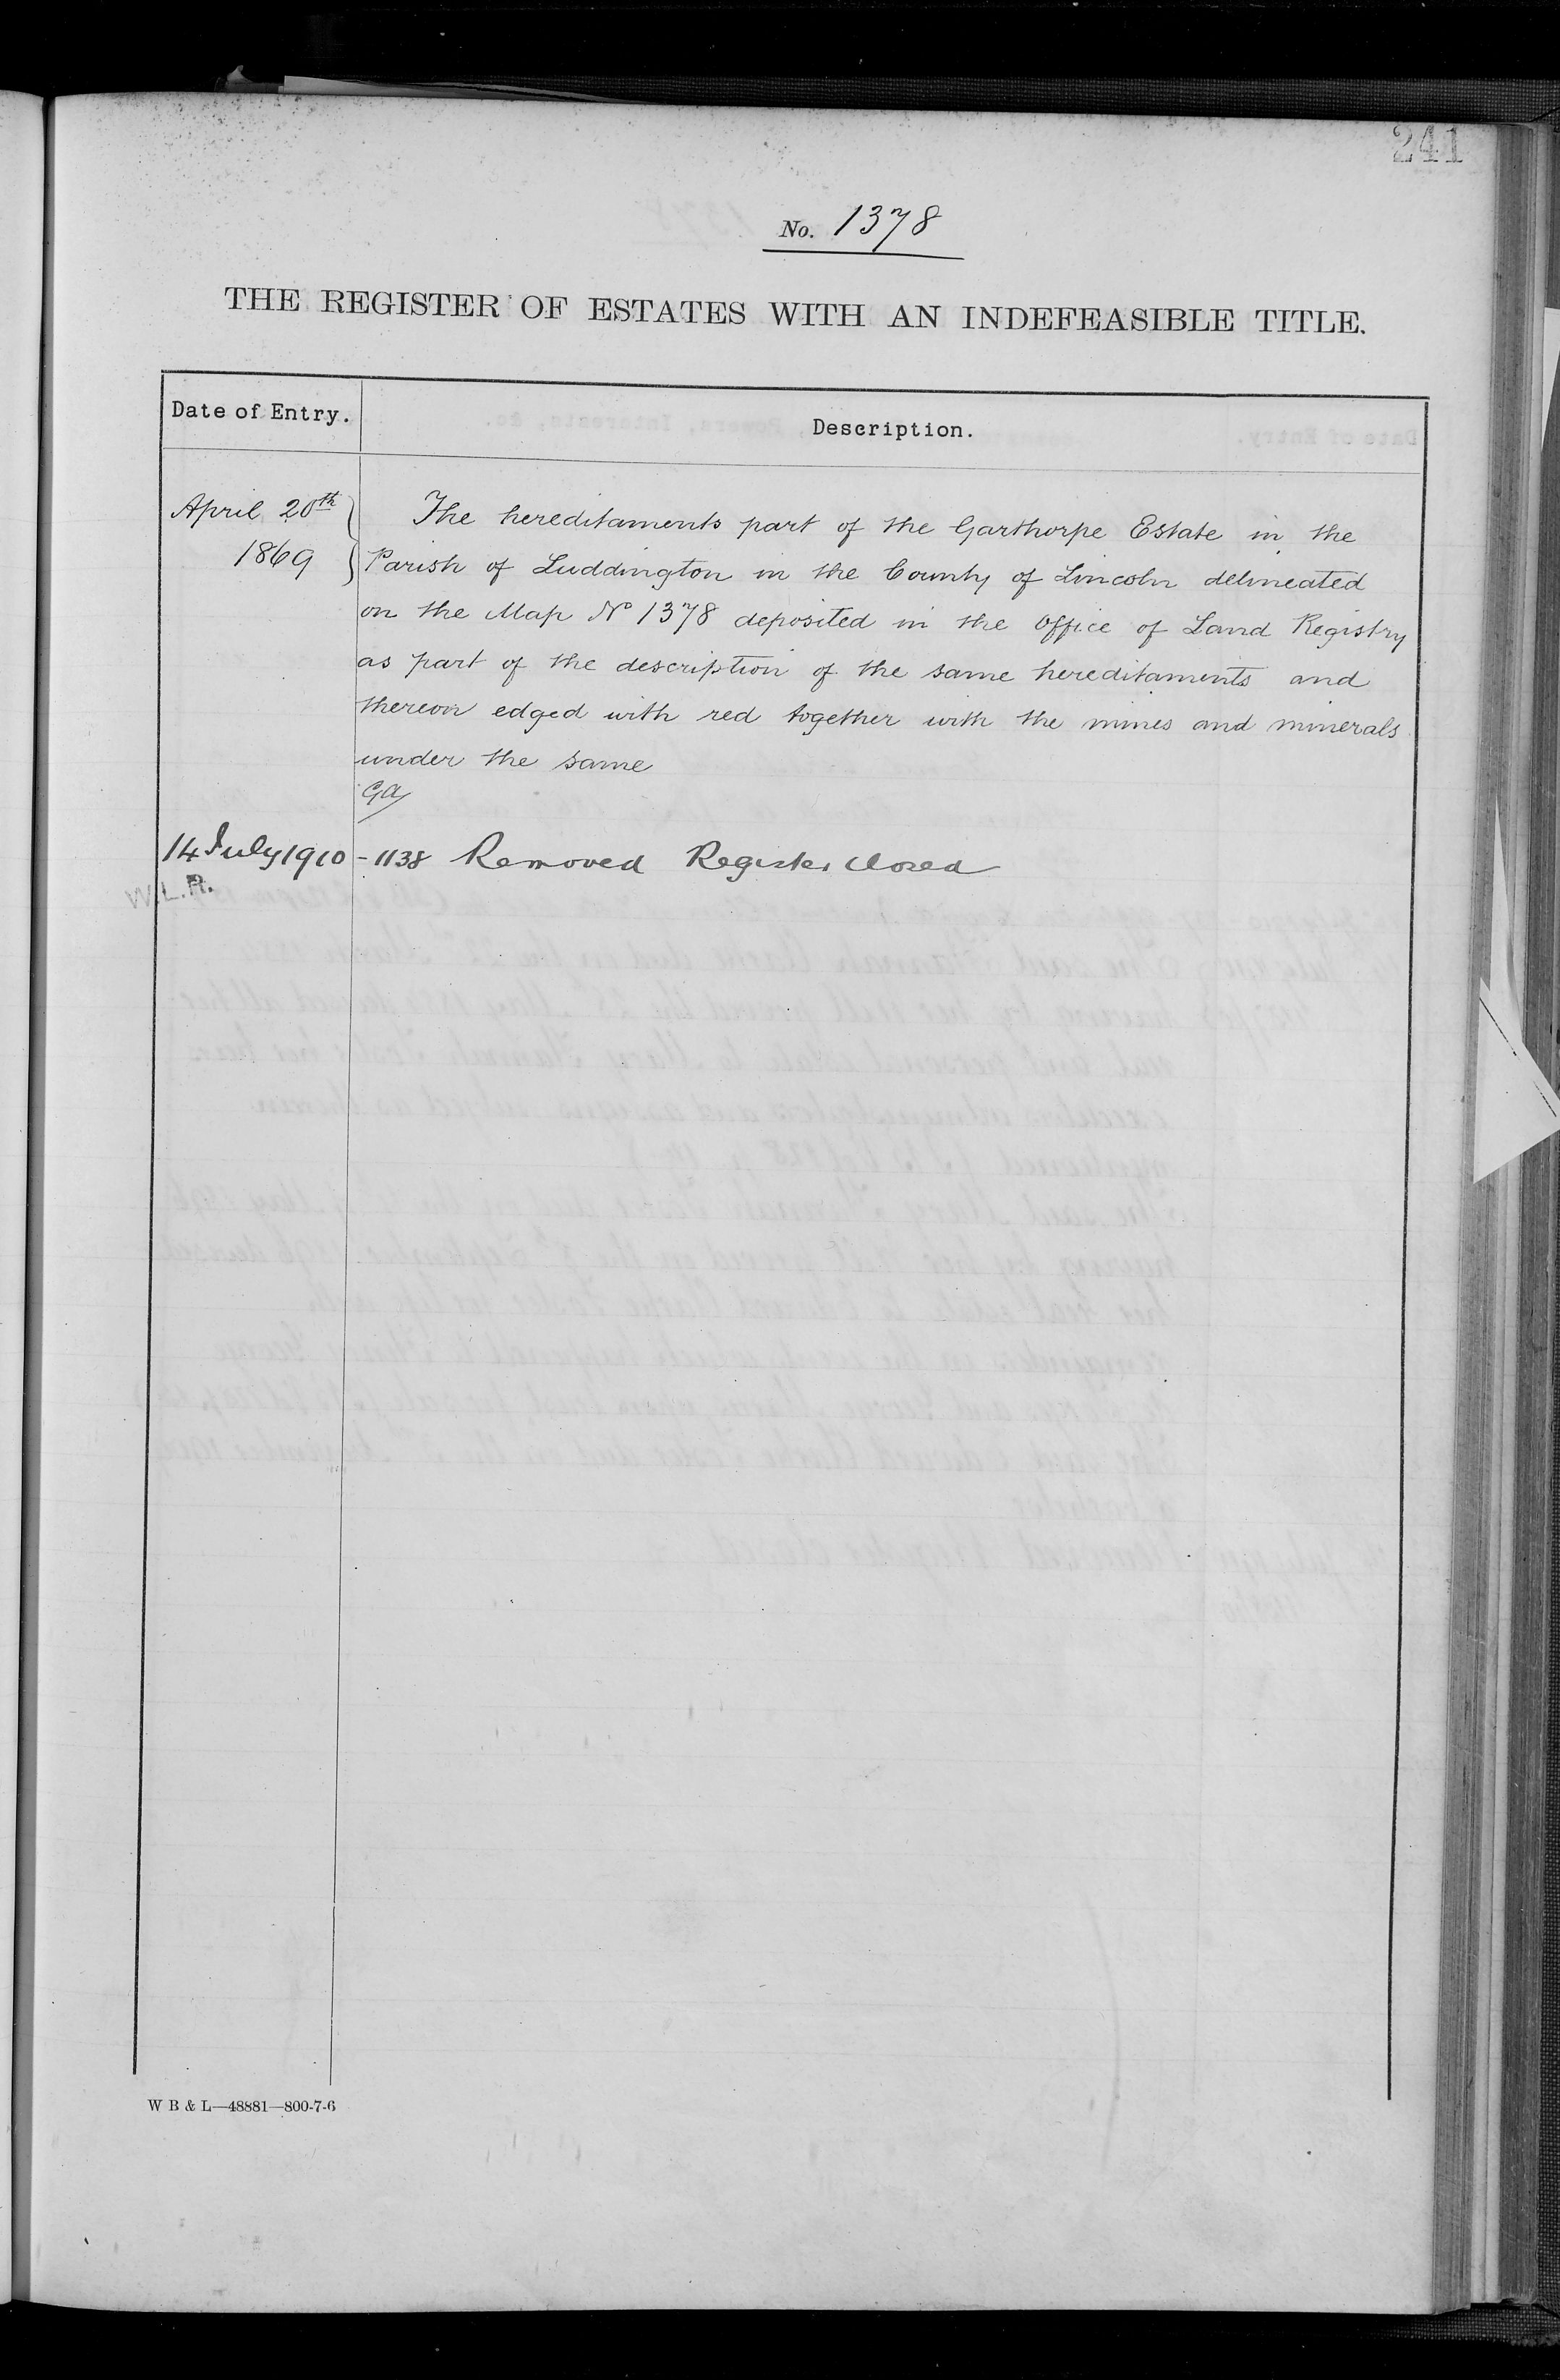 241
No. 1378
THE REGISTER OF ESTATES WITH AN INDEFEASIBLE TITLE.
Date of Entry. Description.
April 20th The hereditaments part of the Garthorpe Estate in the
1869 Parish of Luddington in the County of Lincoln delineated
on the Map No 1378 deposited in the Office of Land Registry
as part of the description of the same hereditaments and
thereon edged with red together with the mines and minerals
under the same
GA
14 July 1910 - 1138 Removed Register closed
W.L.R.
W B & L—48881—800-7-6